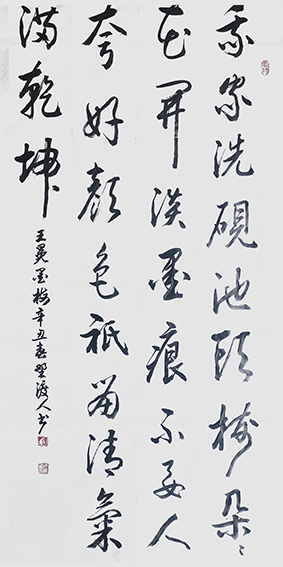 我家洗硯池頭樹朵〻
花開淡墨痕不要人
夸好顏色祇留清氣
滿乾坤
王冕墨梅辛丑春野渡人書